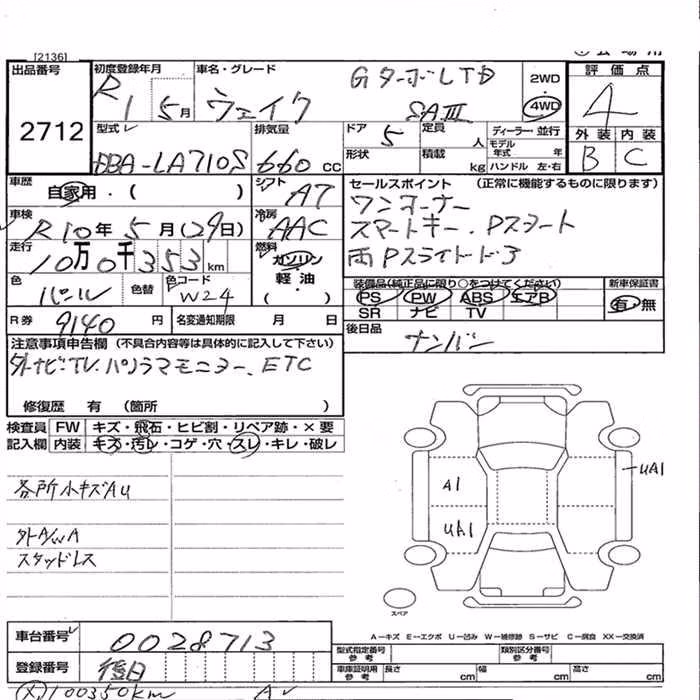 [2136]
出品番号 2712
初度登録年月 R1 5月
車名・グレード ウェイク GターボLTD SAⅢ
2WD 4WD
評価点 4
外装 B 内装 C
型式 DBA-LA710S
排気量 660 cc
ドア 5 定員 人
形状 積載 kg
ディーラー・並行
モデル年式 年式
ハンドル 左・右
車歴 自家用・( )
シフト AT
車検 R10年5月(29日)
冷房 AAC
走行 10万0千353km
燃料 ガソリン 軽油 ( )
色 パール 色替 色コード W24
R券 9140円 名変通知期限 月 日
セールスポイント (正常に機能するものに限ります)
ワンオーナー
スマートキー、Pスタート
両Pスライドドア
装備品(純正品に限り○をつけてください) 新車保証書
PS PW ABS エアB 有・無
SR ナビ TV
後日品 ナンバー
注意事項申告欄 (不具合内容等は具体的に記入して下さい)
外ナビ・TV、パノラマモニター、ETC
修復歴 有 (箇所 )
検査員 FW キズ・飛石・ヒビ割・リペア跡・×要
記入欄 内装 キズ・汚レ・コゲ・穴・スレ・キレ・破レ
各所小キズAU
外A/WA
スタッドレス
A1
UA1
UA1
スペア
A-キズ E-エクボ U-凹み W-補修跡 S-サビ C-腐食 XX-交換済
車台番号 0028713
登録番号 後日
型式指定番号 参考 類別区分番号 参考
車庫証明用 参考 長さ cm 幅 cm 高さ cm
100350km